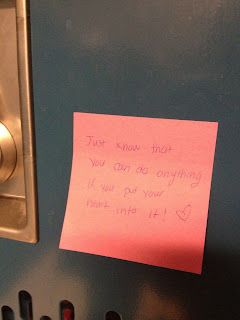 Just know that
you can do anything
if you put your
heart into it! ♡